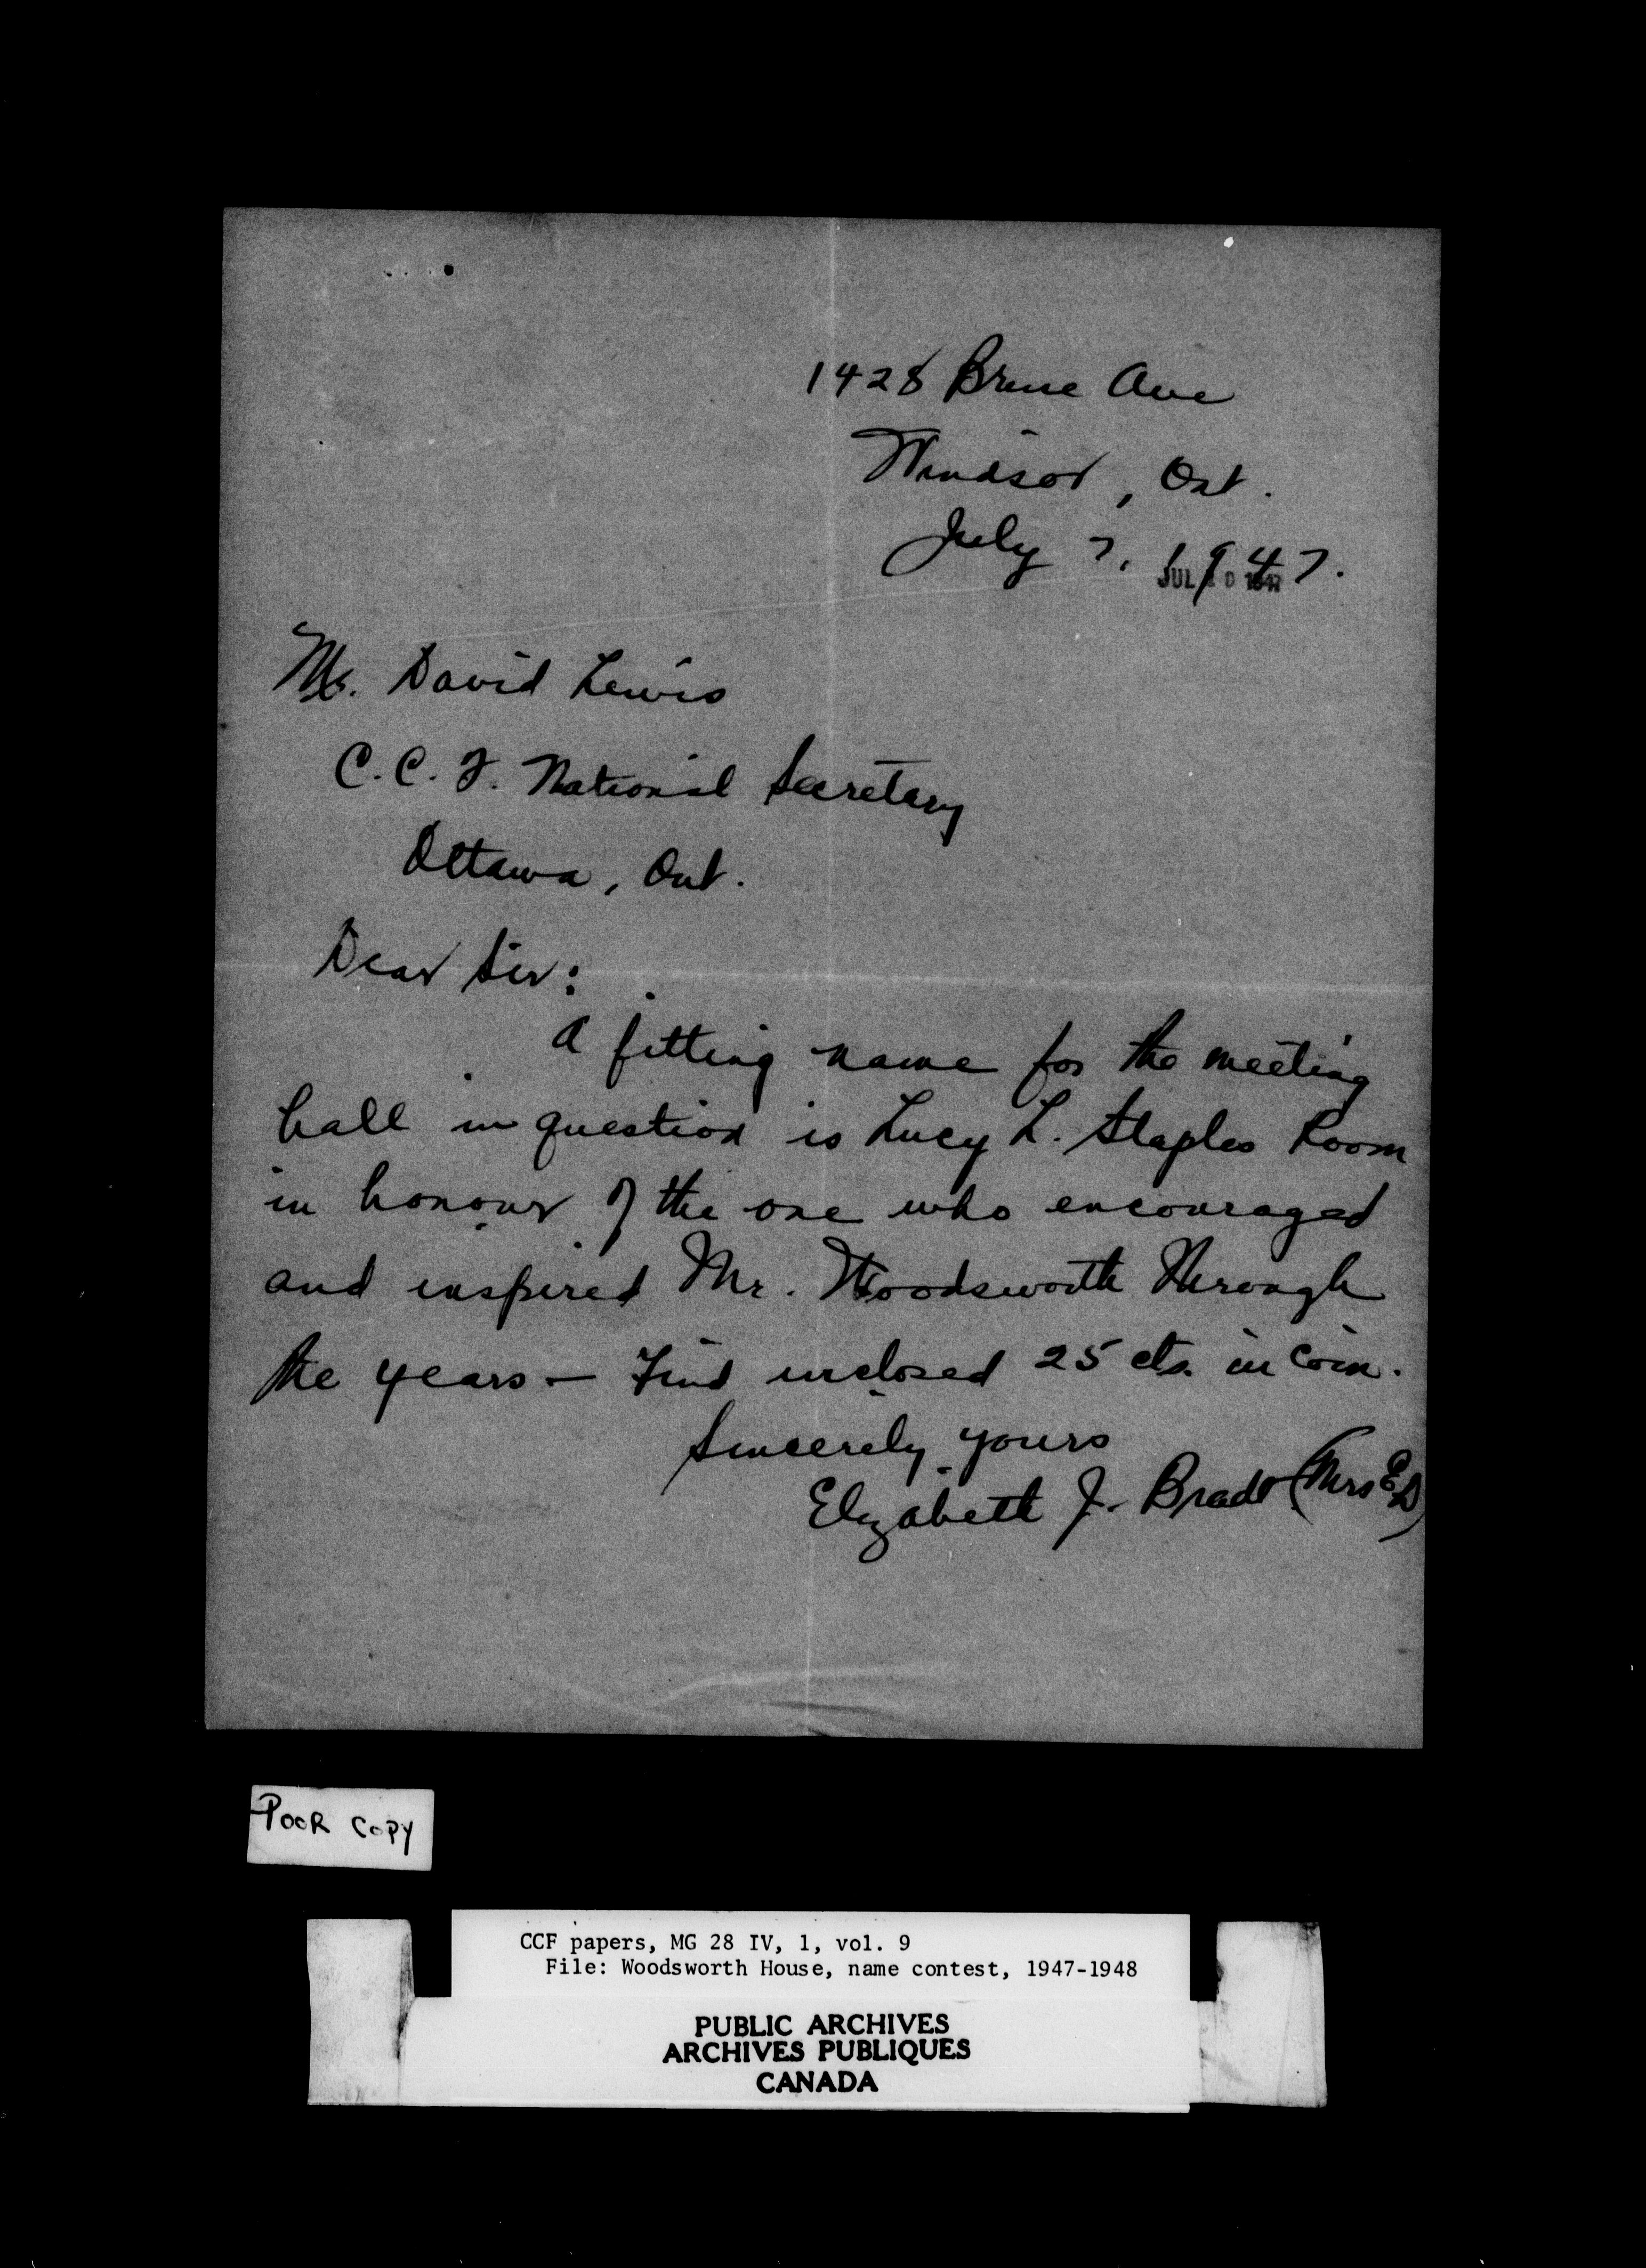 1428 Bruce Ave
Windsor, Ont.
July 7, 1947.
JUL 10 1947
Mr. David Lewis
C.C.F. National Secretary
Ottawa, Ont.
Dear Sir:
A fitting name for the meeting
hall in question is Lucy L. Staples Room
in honour of the one who encouraged
and inspired Mr. Woodsworth through
the years — Find inclosed 25 cts. in coin.
Sincerely yours
Elizabeth J. Bradt (Mrs E D)
POOR COPY
CCF papers, MG 28 IV, 1, vol. 9
File: Woodsworth House, name contest, 1947-1948
PUBLIC ARCHIVES
ARCHIVES PUBLIQUES
CANADA